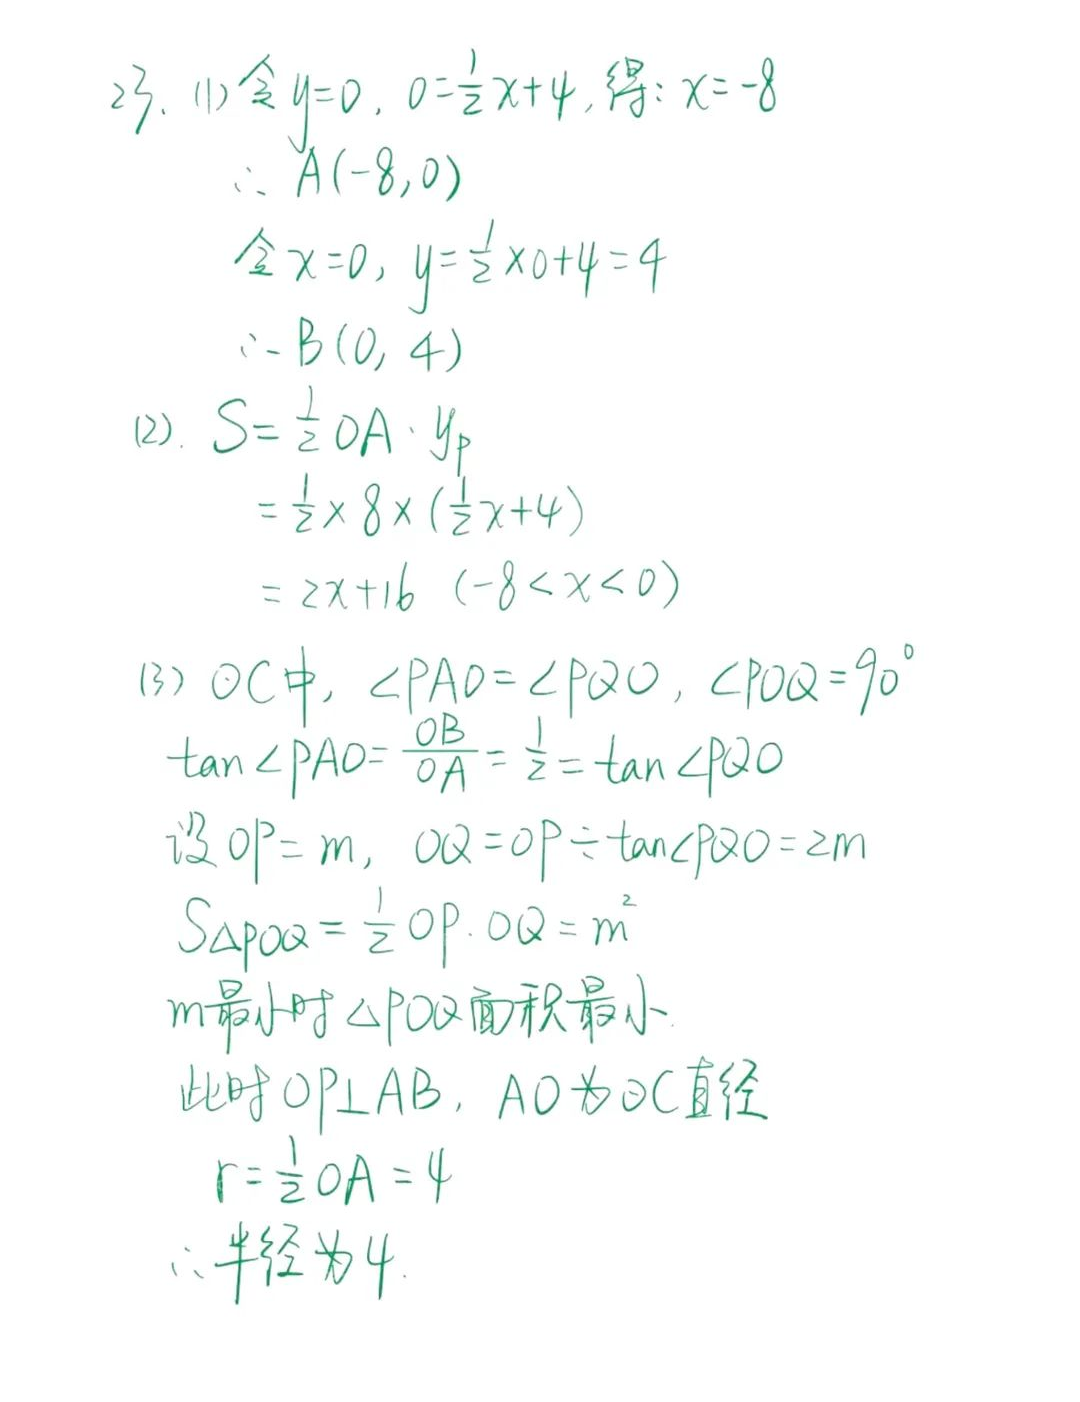 23. (1) 令y=0, 0=1/2x+4, 得: x=-8
∴ A(-8,0)
令x=0, y=1/2×0+4=4
∴ B(0, 4)
(2). S=1/2OA·yₚ
=1/2×8×(1/2x+4)
=2x+16 (-8<x<0)
(3) ⊙C中, ∠PAO=∠PQO, ∠POQ=90°
tan∠PAO=OB/OA=1/2=tan∠PQO
设OP=m, OQ=OP÷tan∠PQO=2m
S△POQ=1/2OP·OQ=m²
m最小时△POQ面积最小.
此时OP⊥AB, AO为⊙C直径
r=1/2OA=4
∴半径为4.